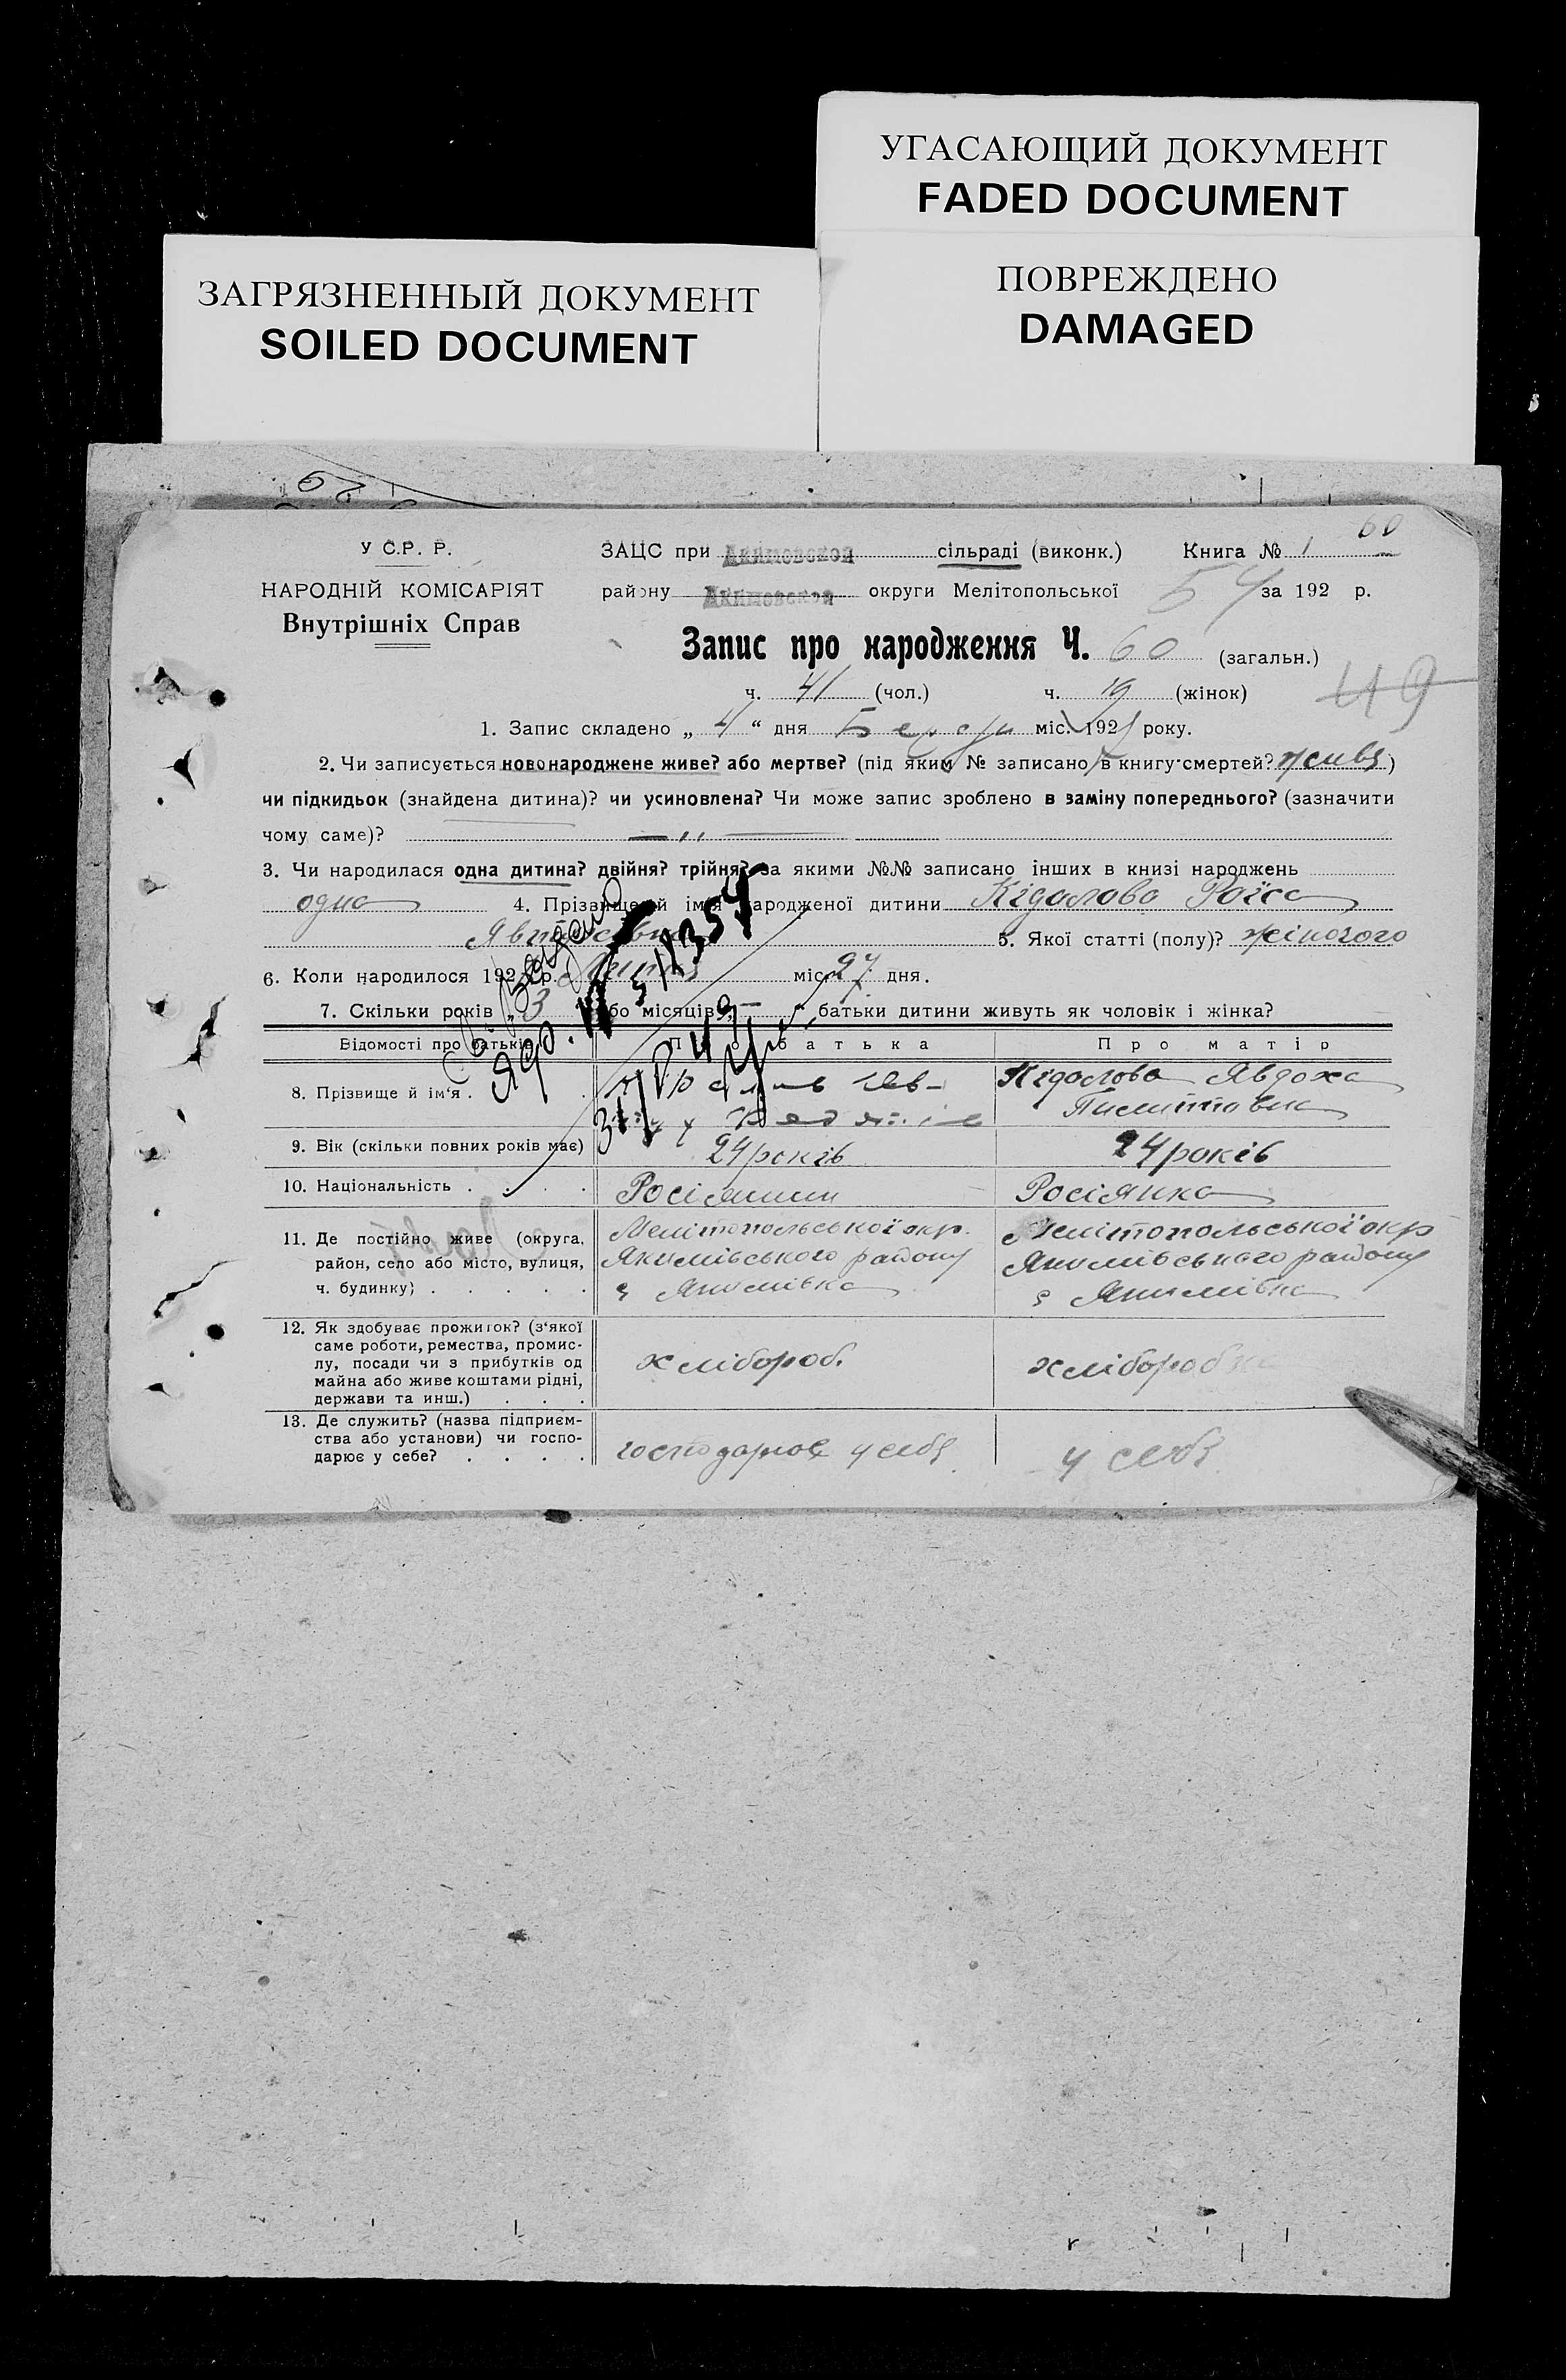 УГАСАЮЩИЙ ДОКУМЕНТ
FADED DOCUMENT
ЗАГРЯЗНЕННЫЙ ДОКУМЕНТ
SOILED DOCUMENT
ПОВРЕЖДЕНО
DAMAGED
60
У С.Р. Р.
ЗАЦС при Акимовской сільраді (виконк.) Книга № 1
НАРОДНІЙ КОМІСАРІЯТ
Внутрішніх Справ
району Акимовской округи Мелітопольської 54 за 192 р.
Запис про народження Ч. 60 (загальн.)
49
ч. 41 (чол.) ч. 19 (жінок)
1. Запис складено „ 4 “ дня міс. 192 року.
2. Чи записується новонароджене живе? або мертве? (під яким № записано в книгу смертей? живе)
чи підкидьок (знайдена дитина)? чи усиновлена? Чи може запис зроблено в заміну попереднього? (зазначити
чому саме)? — „ —
3. Чи народилася одна дитина? двійня? трійня? за якими №№ записано інших в книзі народжень
одна 4. Прізвище й ім'я народженої дитини Кідалова Раїса
5. Якої статті (полу)? жіночого
6. Коли народилося 192 р. міс. 27 дня.
7. Скільки років „ 3 або місяців „ — “ батьки дитини живуть як чоловік і жінка?
Відомості про батьків Про батька Про матір
8. Прізвище й ім'я . Кідалова Явдоха
9. Вік (скільки повних років має) 24 років 24 років
10. Національність . . . . Росіянин Росіянка
11. Де постійно живе (округа, район, село або місто, вулиця, ч. будинку) . . . . .
Мелітопольської окр. Якимівського району с Якимівка
Мелітопольської окр Якимівського району с Якимівка
12. Як здобуває прожиток? (з'якої саме роботи, ремества, промислу, посади чи з прибутків од майна або живе коштами рідні, держави та инш.) . . .
хлібороб. хліборобка
13. Де служить? (назва підприємства або установи) чи господарює у себе? . . . .
господарює у себе у себе